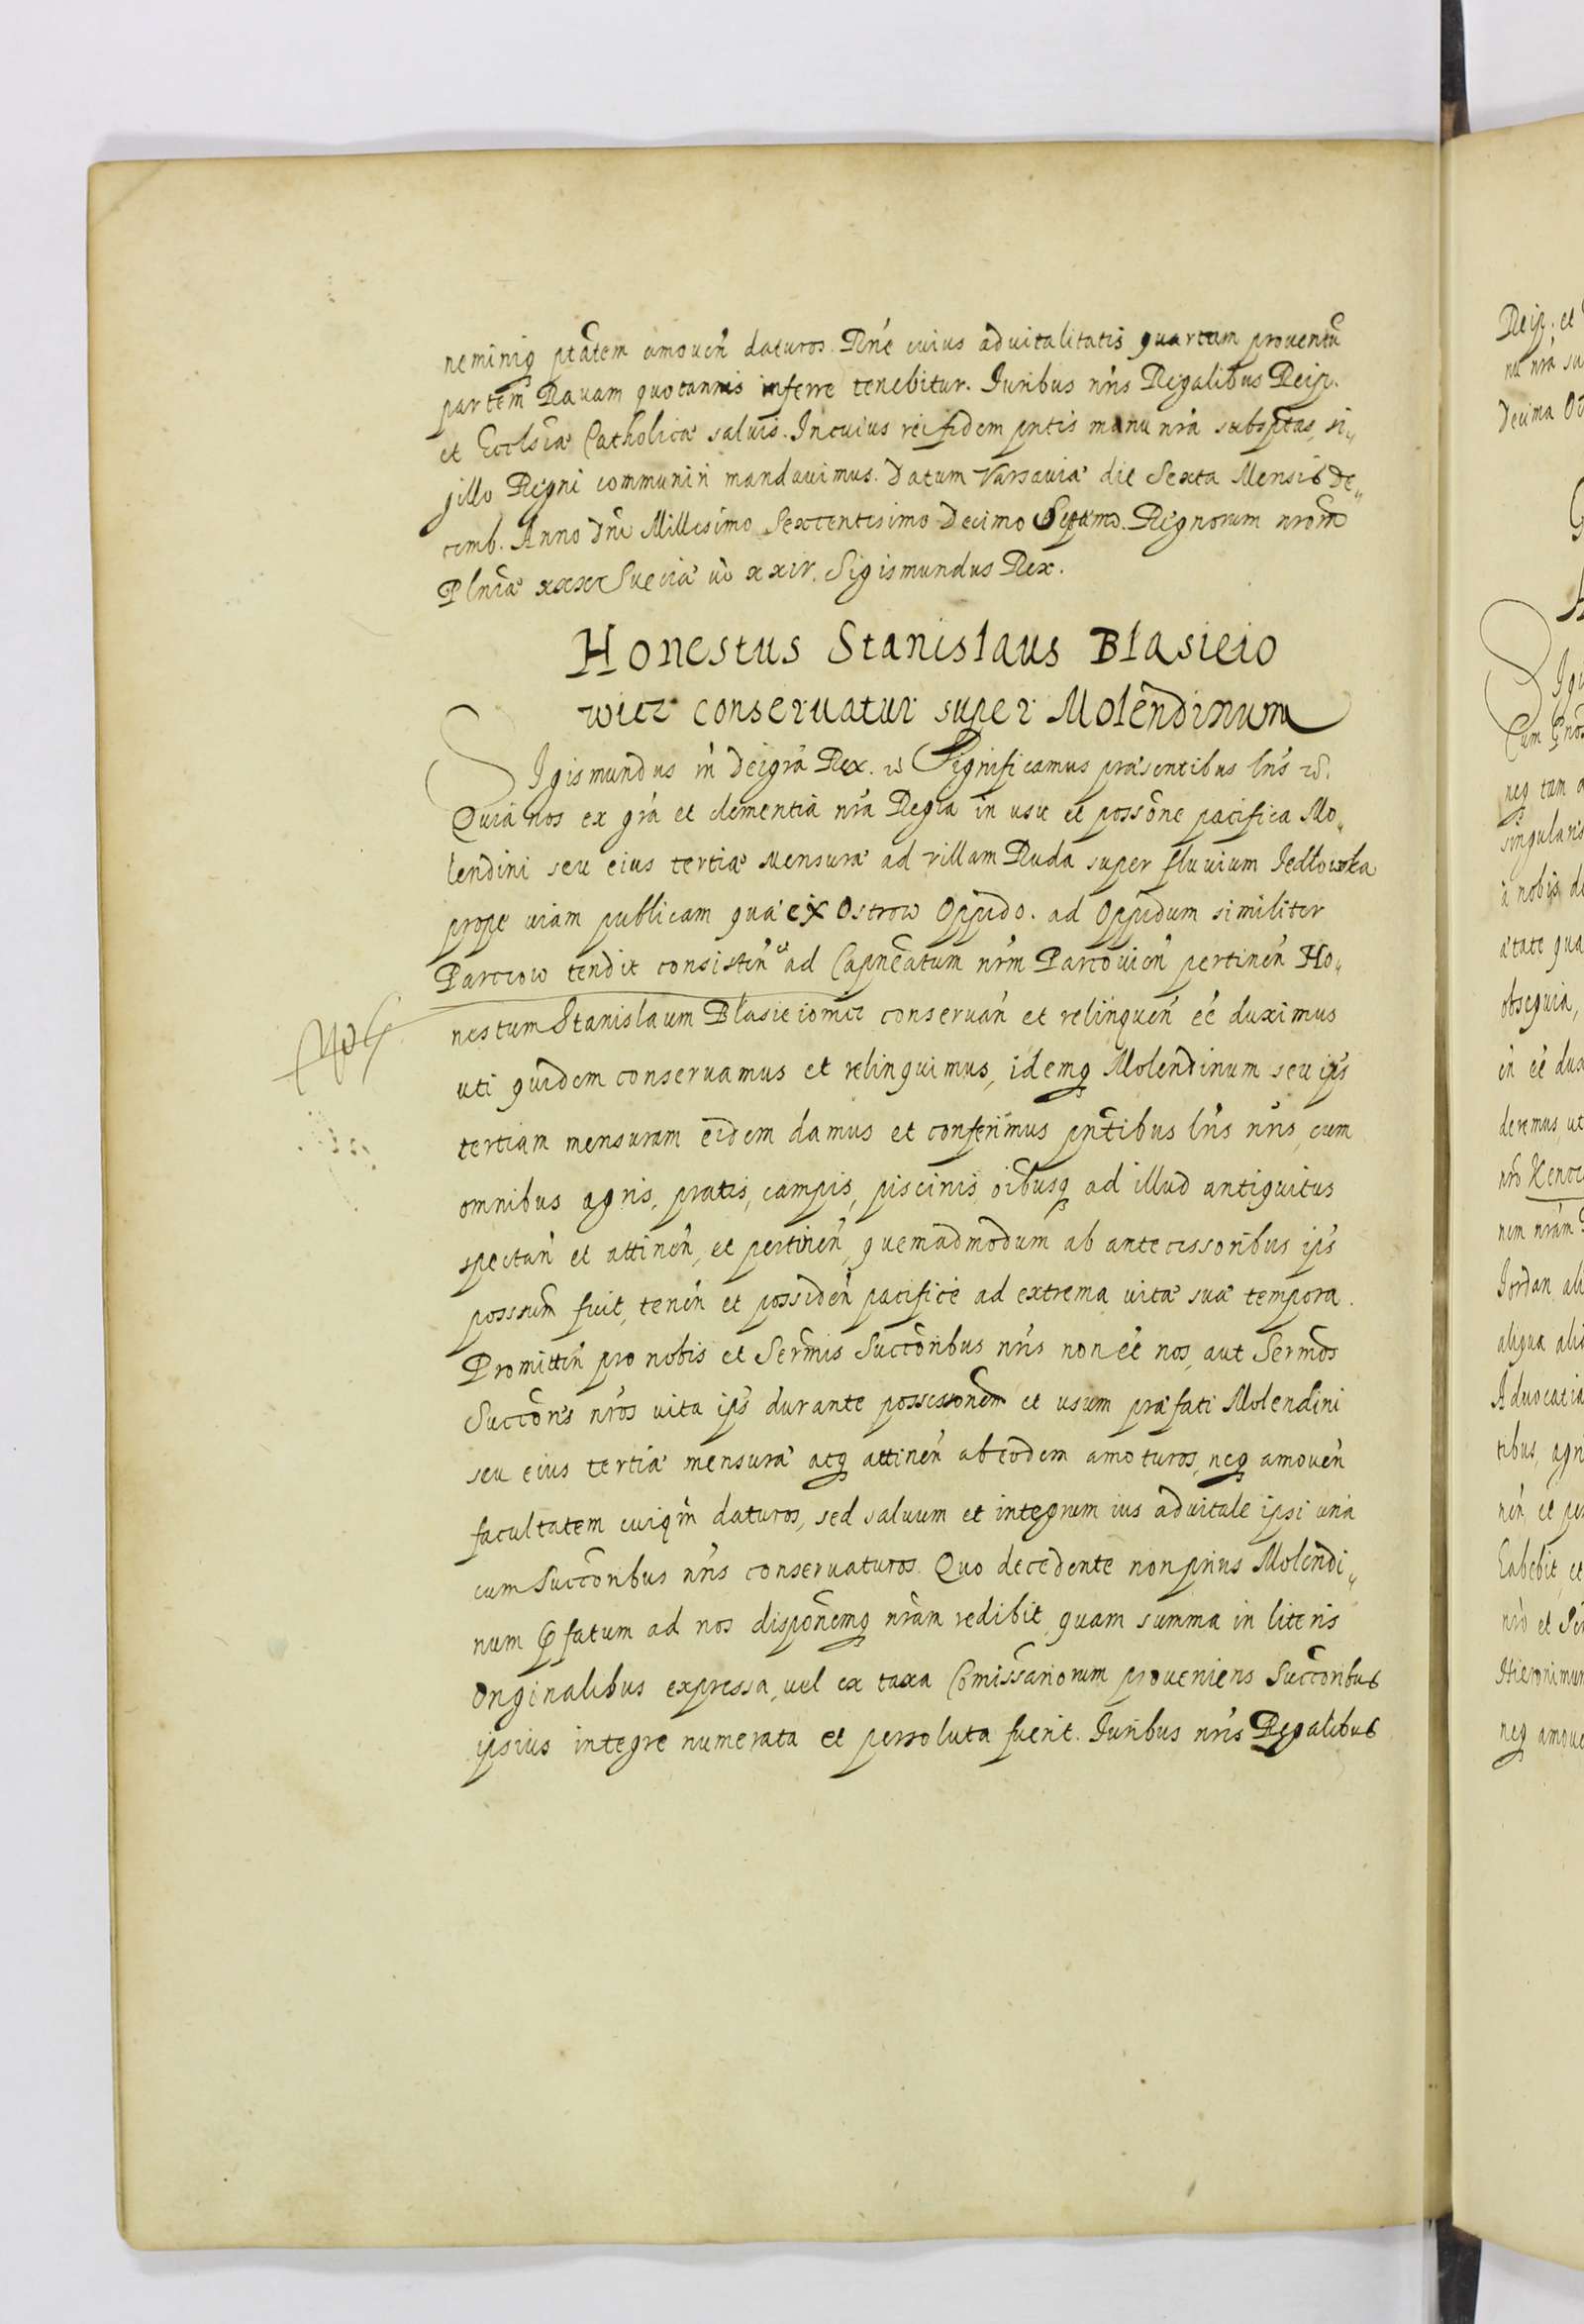 neminiq ptãtem amovẽn daturos. Rñe cuius advitalitatis quartam proventũ
partem Ravam quotannis inferre tenebitur. Iuribus nr̃is Regalibus Reip.
et Ecclsiæ Catholicæ salvis. In cuius rei fidem pntis manu nrã subsptas, si„
gillo Regni communiri mandavimus. Datum Varsaviæ die Sexta Mensis De„
cemb. Anno Dni Millesimo Sexcentesimo Decimo Septimo. Regnorum nrõm
Plniæ xxx Sueciæ vo xxiv. Sigismundus Rex.
Honestus Stanislaus Blasieio
wicz conservatur super Molendinum
SIgismundus iii Dei grã Rex. Significamus præsentibus lr̃is
Quia nos ex grã et clementia nrã Regia in usu et possõne pacifica Mo„
lendini seu eius tertiæ mensuræ ad villam Ruda super fluvium Jedlowka
prope viam publicam quæ ex Ostrow Oppido. ad Oppidum similiter
Parczow tendit consisteñ et ad Capneatum nr̃m Parcovieñ pertineñ Ho„
nestum Stanislaum Blasieiowicz conservañ et relinqueñ eẽ duximus
uti quidem conservamus et relinquimus, idemq Molendinum seu ips
tertiam mensuram eidem damus et conferimus pñtibus lr̃is nr̃is, cum
omnibus agris, pratis, campis, piscinis, oĩbusq ad illud antiquitus
spectañ et attineñ, et pertineñ, quemadmodum ab antecessoribus ips
posssum fuit, teneñ et possideñ pacifice ad extrema vitæ suæ tempora.
Promitteñ pro nobis et Sermis Succoribus nr̃is non eẽ nos, aut Sermos
Succores nr̃os vita ips durante possessionem et usum præfati Molendini
seu eius tertiæ mensuræ atq attineñ ab eodem amoturos, neq amoveñ
facultatem cuiqm daturos, sed salvum et integrum ius advitale ipsi una
cum Succoribus nr̃is conservaturos. Quo decedente non prius Molendi„
num pfatum ad nos disponemq nrãm redibit, quam summa in literis
Originalibus expressa, vel ex taxa Comissariorum proveniens Succoribus
ipsius integre numerata et persoluta fuerit. Iuribus nr̃is Regalibus